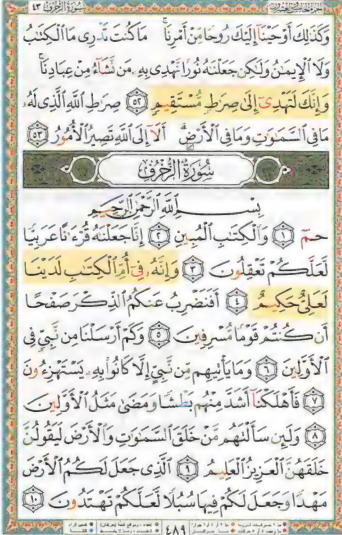 سُورَةُ الزُّخْرُفِ ٤٣
وَكَذَٰلِكَ أَوْحَيْنَا إِلَيْكَ رُوحًا مِّنْ أَمْرِنَا ۚ مَا كُنتَ تَدْرِي مَا الْكِتَابُ
وَلَا الْإِيمَانُ وَلَٰكِن جَعَلْنَاهُ نُورًا نَّهْدِي بِهِ مَن نَّشَاءُ مِنْ عِبَادِنَا ۚ
وَإِنَّكَ لَتَهْدِي إِلَىٰ صِرَاطٍ مُّسْتَقِيمٍ ٥٢ صِرَاطِ اللَّهِ الَّذِي لَهُ
مَا فِي السَّمَاوَاتِ وَمَا فِي الْأَرْضِ ۗ أَلَا إِلَى اللَّهِ تَصِيرُ الْأُمُورُ ٥٣
سُورَةُ الزُّخْرُفِ
بِسْمِ اللَّهِ الرَّحْمَٰنِ الرَّحِيمِ
حم ١ وَالْكِتَابِ الْمُبِينِ ٢ إِنَّا جَعَلْنَاهُ قُرْآنًا عَرَبِيًّا
لَّعَلَّكُمْ تَعْقِلُونَ ٣ وَإِنَّهُ فِي أُمِّ الْكِتَابِ لَدَيْنَا
لَعَلِيٌّ حَكِيمٌ ٤ أَفَنَضْرِبُ عَنكُمُ الذِّكْرَ صَفْحًا
أَن كُنتُمْ قَوْمًا مُّسْرِفِينَ ٥ وَكَمْ أَرْسَلْنَا مِن نَّبِيٍّ فِي
الْأَوَّلِينَ ٦ وَمَا يَأْتِيهِم مِّن نَّبِيٍّ إِلَّا كَانُوا بِهِ يَسْتَهْزِءُونَ
٧ فَأَهْلَكْنَا أَشَدَّ مِنْهُم بَطْشًا وَمَضَىٰ مَثَلُ الْأَوَّلِينَ
٨ وَلَئِن سَأَلْتَهُم مَّنْ خَلَقَ السَّمَاوَاتِ وَالْأَرْضَ لَيَقُولُنَّ
خَلَقَهُنَّ الْعَزِيزُ الْعَلِيمُ ٩ الَّذِي جَعَلَ لَكُمُ الْأَرْضَ
مَهْدًا وَجَعَلَ لَكُمْ فِيهَا سُبُلًا لَّعَلَّكُمْ تَهْتَدُونَ ١٠
٤٨٩